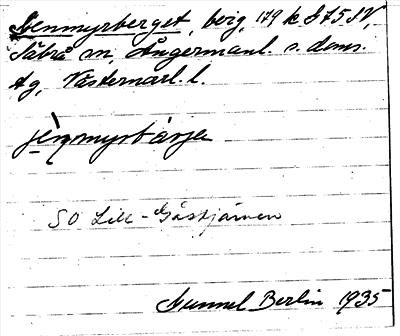 Stenmyrberget, berg, 179 k 875 SV.
Säbrå sn, Ångermanl. s. doms.
Ag, Västernorrl. l.
stènmyrbärje
SO Lill-Gåstjärnen
Gunnel Berlin 1935